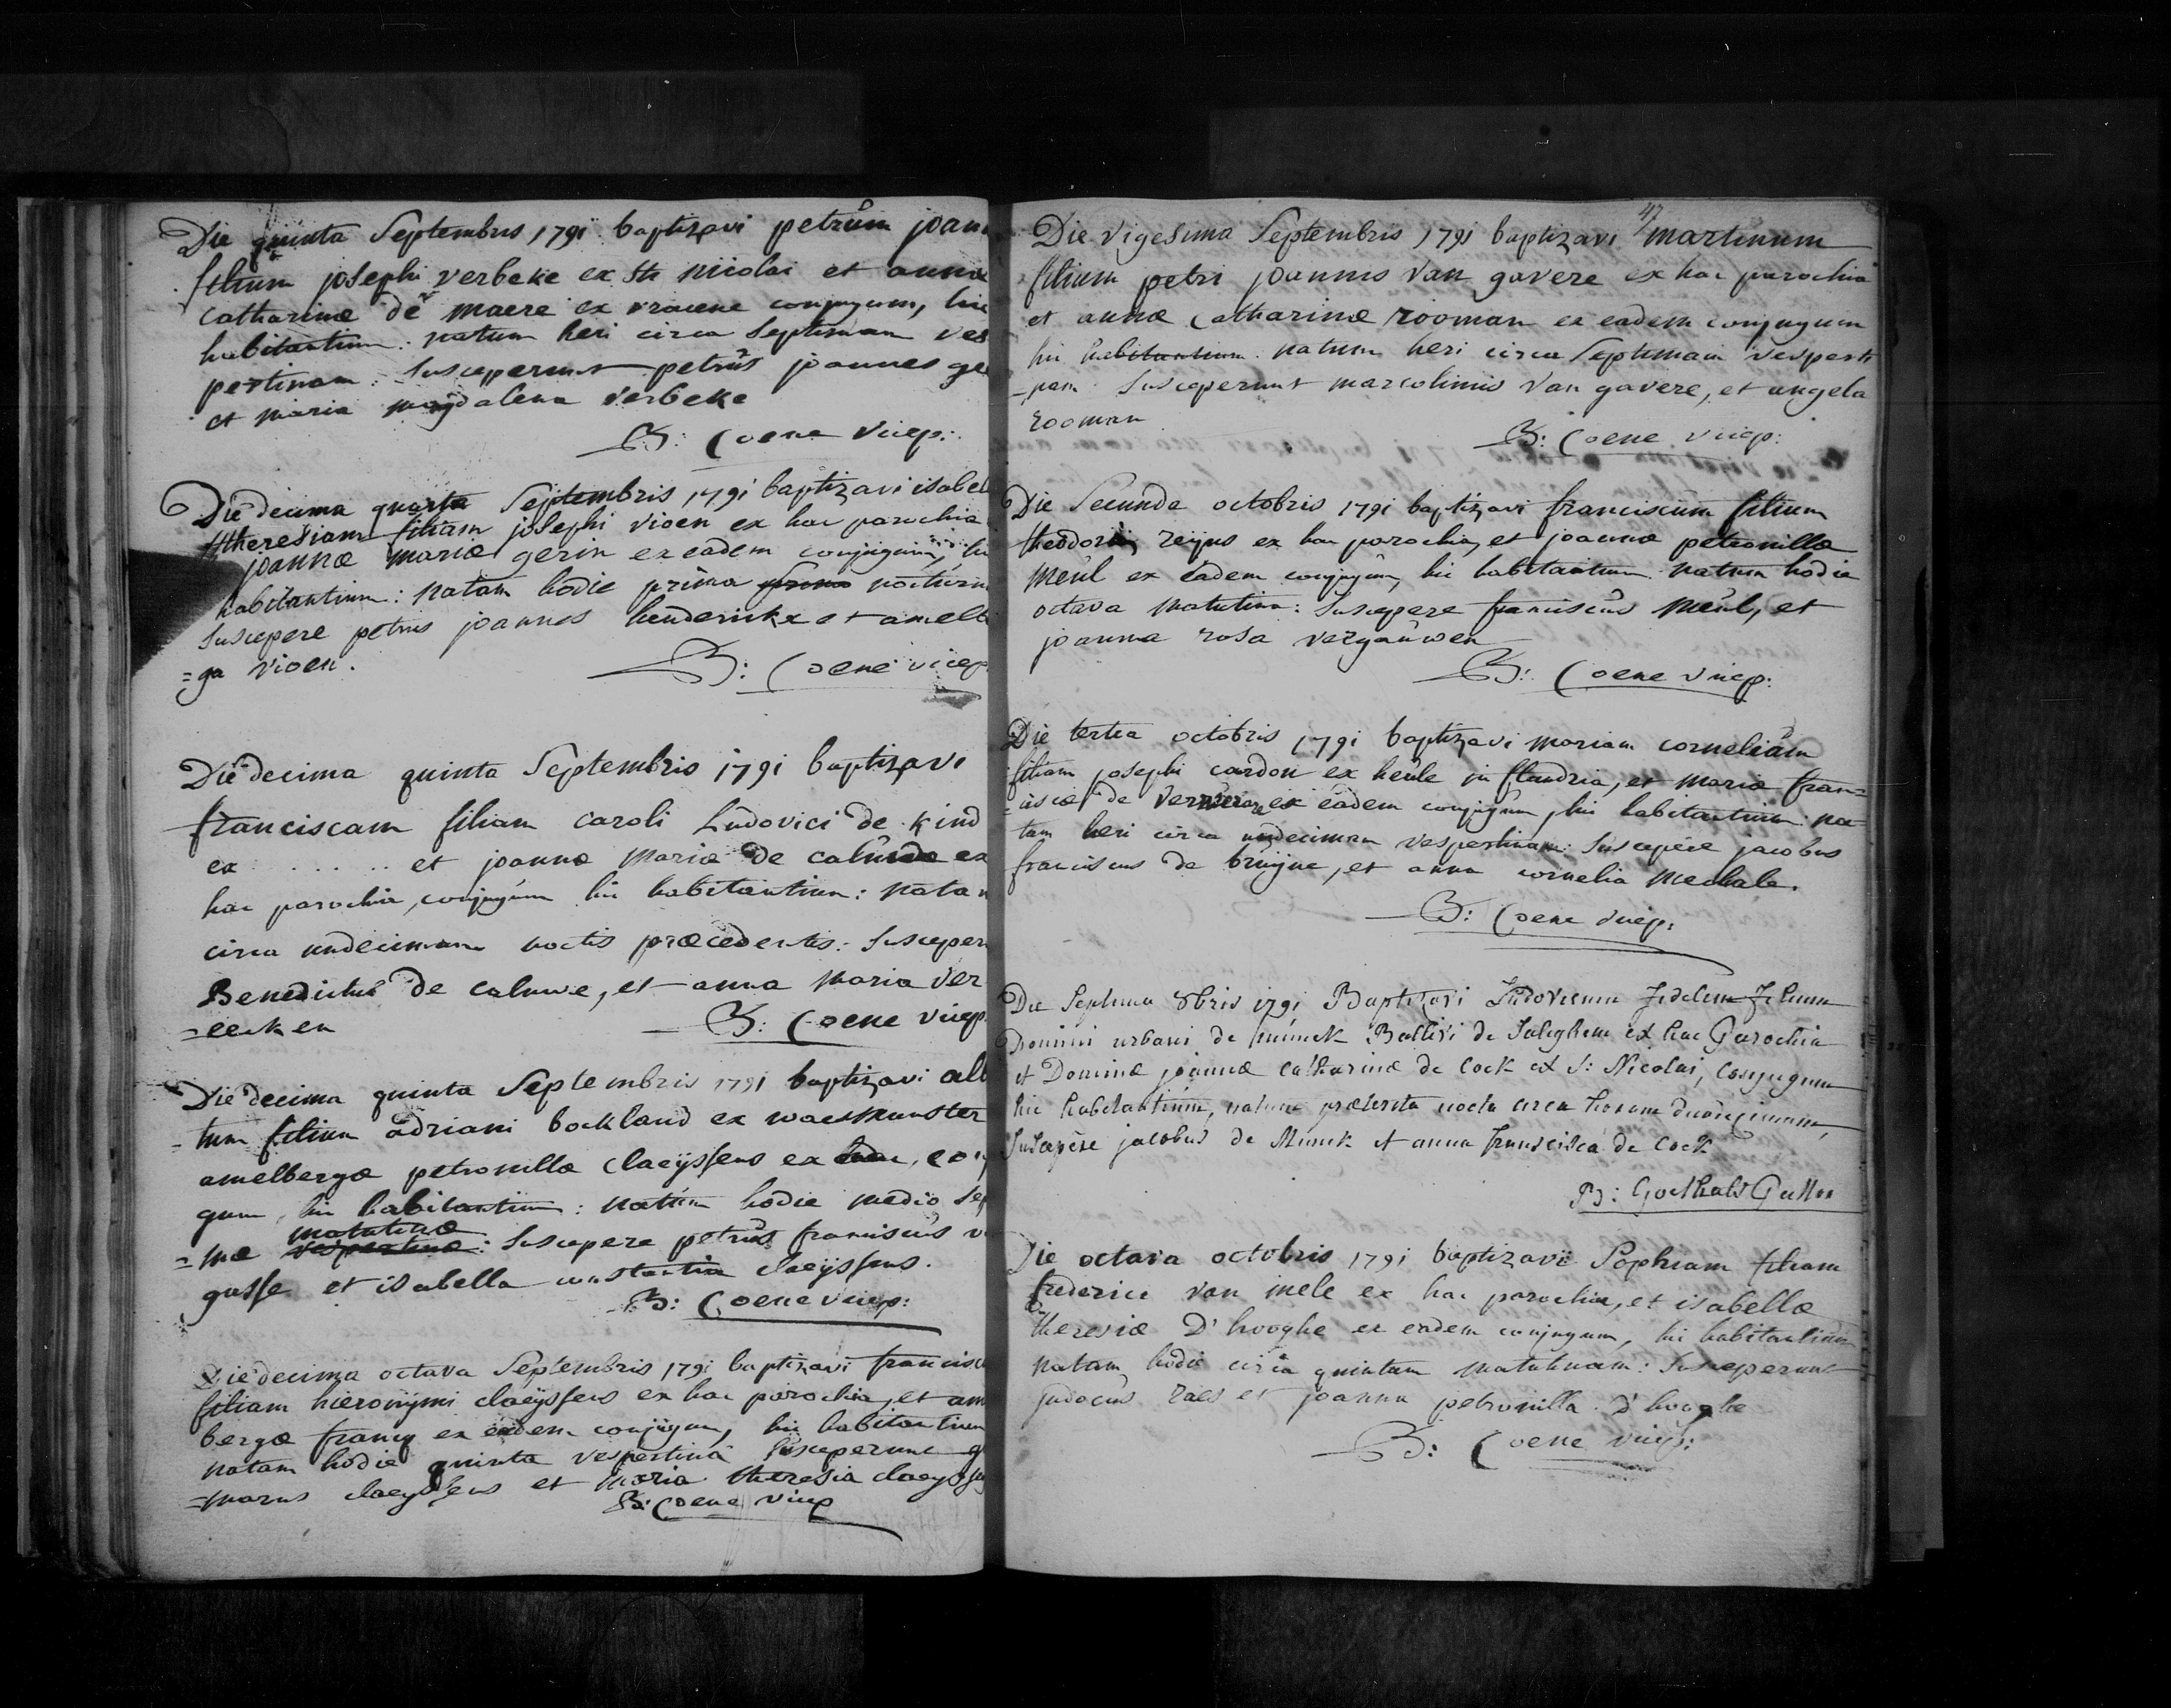 Die quinta Septembris 1791 baptizavi petrum joan
filium josephi verbeke ex Sti nicolai et annæ
catharinæ de maere ex vracene conjugum, hic
habitantium: natum heri circa septimam ves
pertinam: Susceperunt petrus joannes ge
et maria magdalena verbeke
B: Coene vicep:
Die decima quarta Septembris 1791 baptizavi isabel
theresiam filiam josephi vioen ex hac parochia
joannæ mariæ gerin ex eadem conjugum, hi
habitantium: natam hodie prima nocturn
Suscepere petrus joannes henderickx et amelb
=ga vioen.
B: Coene vicep
Die decima quinta Septembris 1791 baptizavi
franciscam filiam caroli Ludovici de kind
ex ..... et joannæ mariæ de caluwe ex
hac parochia, conjugum hic habitantium: natam
circa undecimam noctis præcedentis: Susceper
Benedictus de caluwe, et anna maria ver
=eecken
B: Coene vicep.
Die decima quinta Septembris 1791 baptizavi alb
=tum filium adriani bockland ex waesmunster
amelbergæ petronillæ claeÿssens ex conj
gum, hic habitantium: natum hodie medio sep
matutinæ
=mæ vespertinæ: Suscepere petrus franciscus v
gasse et isabella constantia claeÿssens.
B: Coene vicep:
Die decima octava Septembris 1791 baptizavi francisc
filiam hieronÿmi claeÿssens ex hac parochia, et am
bergæ francq ex eadem conjugum, hic habitantium
natam hodie quinta vespertina Susceperunt g
=marus claeyssens et maria theresia claeysse
B: Coene vicep
47
Die vigesima Septembris 1791 baptizavi martinum
filium petri joannis van gavere ex hac parochia
et annæ catharinæ rooman ex eadem conjugum
hic habitantium. natum heri circa Septimam vesperti
=nam. Susceperunt marcolinus van gavere, et angela
rooman
B: Coene vicep:
Die Secunda octobris 1791 baptizavi franciscum filium
theodori reÿns ex hac parochia, et joannæ petronillæ
meul ex eadem conjugum, hic habitantium. natum hodie
octava matutina: Suscepere franciscus meul, et
joanna rosa vergauwen
B: Coene vicep:
Die tertia octobris 1791 baptizavi mariam corneliam
filiam josephi cardon ex heule in flandria, et mariæ fran=
=ciscæ de ex eadem conjugum, hic habitantium: na=
tam heri circa undecimam vespertinam: Suscepere jacobus
franciscus de bruÿne, et anna cornelia mechale.
B: Coene vicep:
Die Septima 8bris 1791 Baptizavi Ludovicum Fidelem Filium
Domini urbani de munck Ballivi de Saleghem ex hac Parochia
et Dominæ joannæ catharinæ de Cock ex S: Nicolai, Conjugum
hic habitantium, natum præterita nocte circa horam duodecimam,
Suscepêre jacobus de Munck et anna Francisca de Cock
B: Goethals Pastor
Die octava octobris 1791 baptizavi Sophiam filiam
frederici van mele ex hac parochia, et isabellæ
theresiæ D'hooghe ex eadem conjugum, hic habitantium
natam hodie circa quintam matutinam: Susceperunt
judocus raes et joanna petronilla D'hooghe
B: Coene vicep: